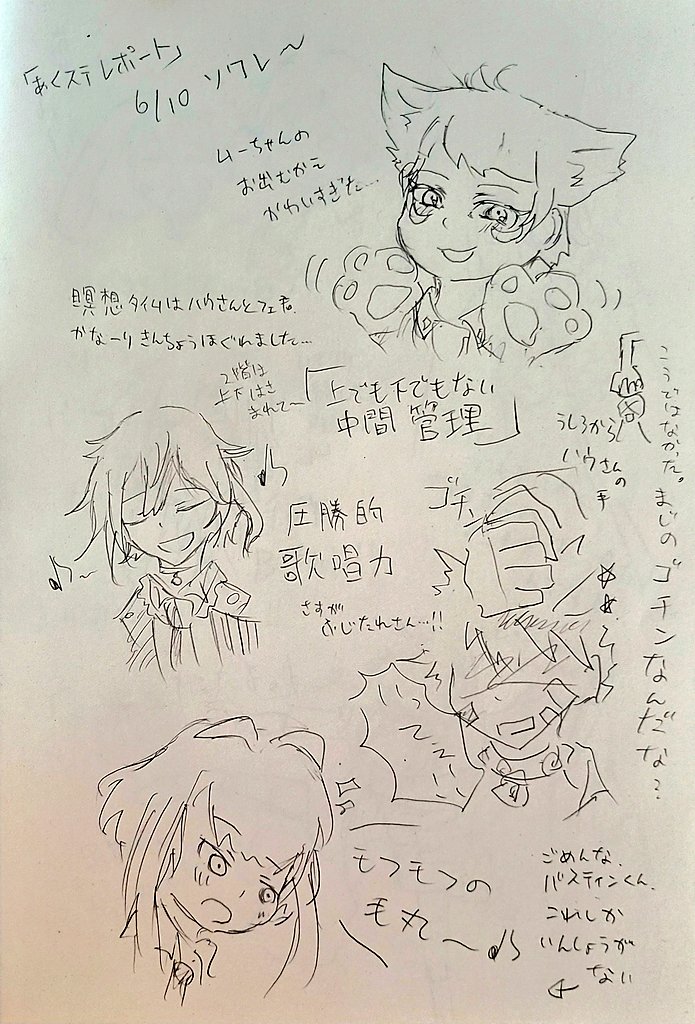 「あくステレポート」
6/10 ソワレ〜
ムーちゃんの
お出むかえ
かわいすぎた…
瞑想タイムはハウさんとフェネ。
かなーりきんちょうほぐれました…
2階は
上下はさ
まれて〜
「上でも下でもない
中間管理」
うしろから
ハウさん
の
手
こうではなかった。まじのゴチンなんだな?
圧勝的
歌唱力
さすが
ふじたれさん…!!
ゴチン
いっ
てえ
モフモフの
毛丸〜♪
ごめんな、
バスティンくん、
これしか
いんしょうが
ない